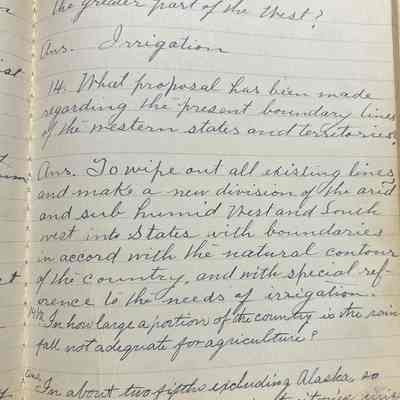 the greater part of the West?
Ans. Irrigation
14. What proposal has been made
regarding the present boundary lines
of the western states and territories?
Ans. To wipe out all existing lines,
and make a new division of the arid
and sub humid West and South
west into States with boundaries
in accord with the natural contour
of the country, and with special ref-
erence to the needs of irrigation.
14½ In how large a portion of the country is the rain
fall not adequate for agriculture?
Ans. In about two fifths excluding Alaska, so